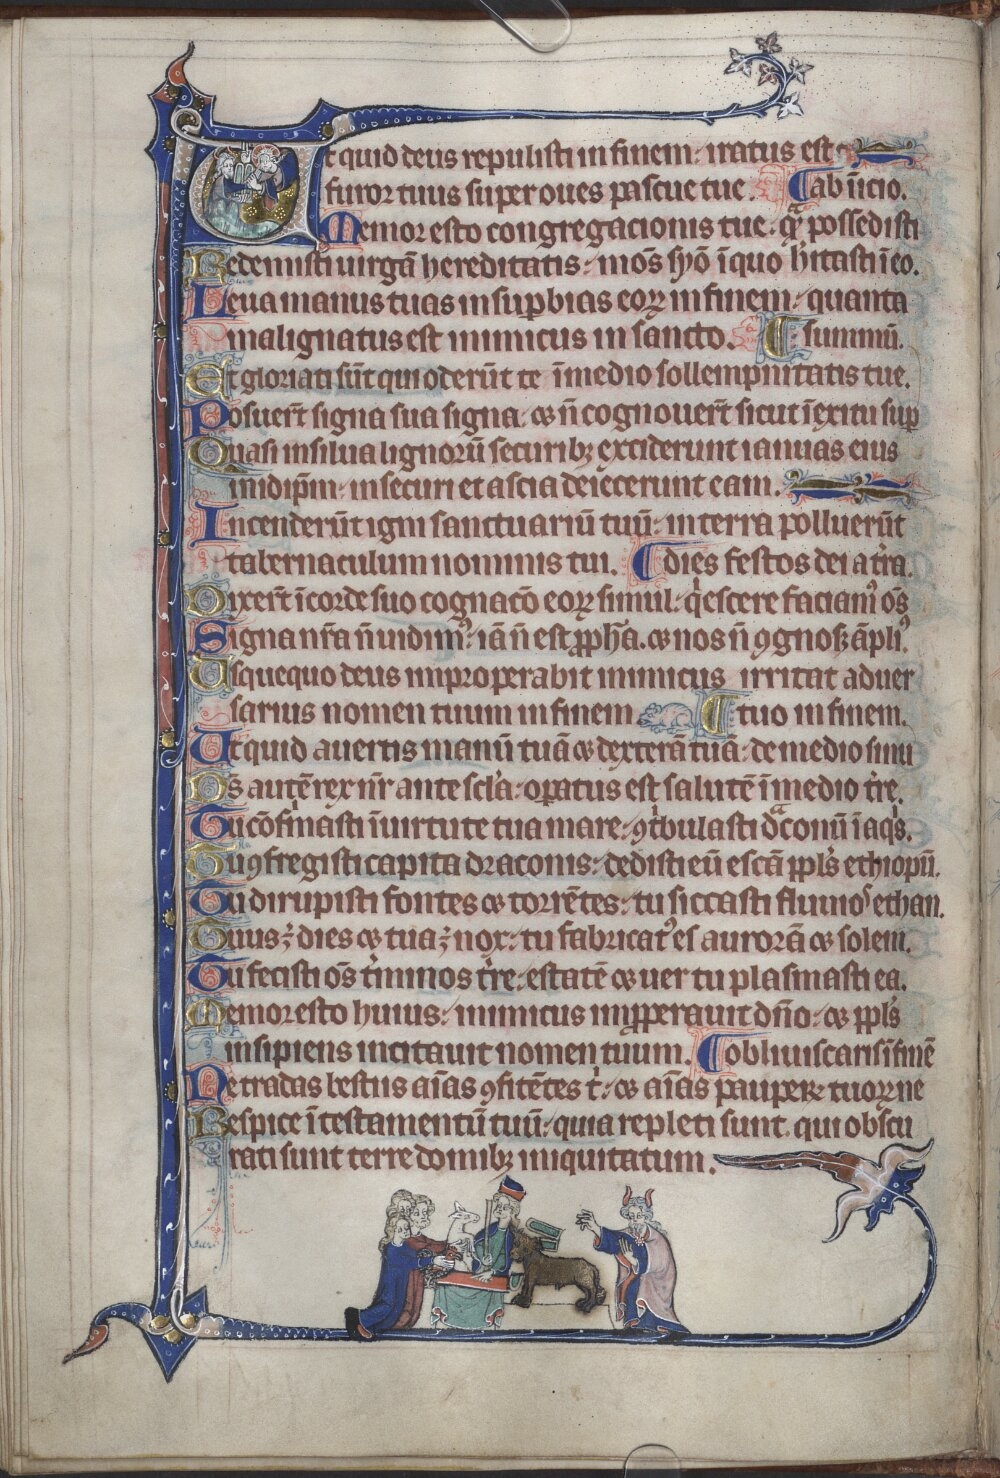 Ut quid deus repulisti in finem: iratus est
furor tuus super oues pascue tue. ab īicio.
Memor esto congregacionis tue: qͣ possedisti
Redemisti uirgā hereditatis: mōs syō īquo hítasti īeo.
Leua manus tuas insuꝑbias eoꝝ in finem: quanta
malignatus est inimicus in sancto. summū.
Et gloriati sūt qui oderūt te īmedio sollempnitatis tue.
Posuer̄t signa sua signa: ⁊ n̄ cognouer̄t sicut īexitu suꝑ
Quasi insilua lignorū securibꝫ exciderunt ianuas eius
inidip̄m: insecuri et ascia deiecerunt eam.
Incenderūt igni sanctuariū tuū: interra polluerūt
tabernaculum nominis tui. dies festos dei at̄ra.
Dixer̄t īcorde suo cognacō eoꝝ simul: qͥescere faciamꝰ os̄
Signa nr̄a n̄ uidimꝰ: iā n̄ est ꝓph̄a. ⁊ nos n̄ ꝯgnosꝫ āpliꝰ.
Usquequo deus improperabit inimicus irritat aduer
sarius nomen tuum in finem tuo in finem.
Ut quid auertis manū tuā ⁊ dexterā tuā: de medio sinu
Ds̄ autē rex nr̄ ante scl̄a: oꝑatus est salutē īmedio tr̄e.
Tu cōfirmasti īuirtute tua mare: ꝯtͥbulasti dͣconū īaqͥs.
Tu ꝯfregisti capita draconis: dedisti eū escā ppl̄s ethiopū.
Tu dirupisti fontes ⁊ torrētes: tu siccasti fluuios ethan.
Tuus ē dies ⁊ tua ē nox: tu fabricatꝰ es aurorā ⁊ solem.
Tu fecisti os̄ tͥminos tr̄e: estatē ⁊ uer tu plasmasti ea.
Memor esto huius: inimicus imꝓperauit dn̄o: ⁊ ppl̄s
insipiens incitauit nomen tuum. obliuiscaris īfinē
Ne tradas bestiis aīas ꝯfitētes tͥ: ⁊ aīas pauperꝝ tuoꝝ ne
Respice ītestamentū tuū: quia repleti sunt qui obscu
rati sunt terre domibꝫ iniquitatum.